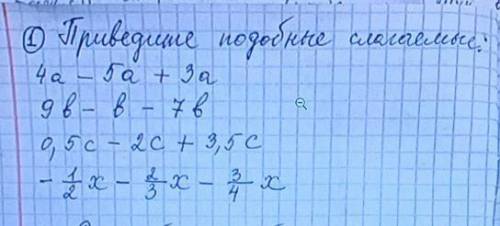 ① Приведите подобные слагаемые:
4а - 5а + 3а
9в - в - 7в
0,5с - 2с + 3,5с
- 1/2 х - 2/3 х - 3/4 х